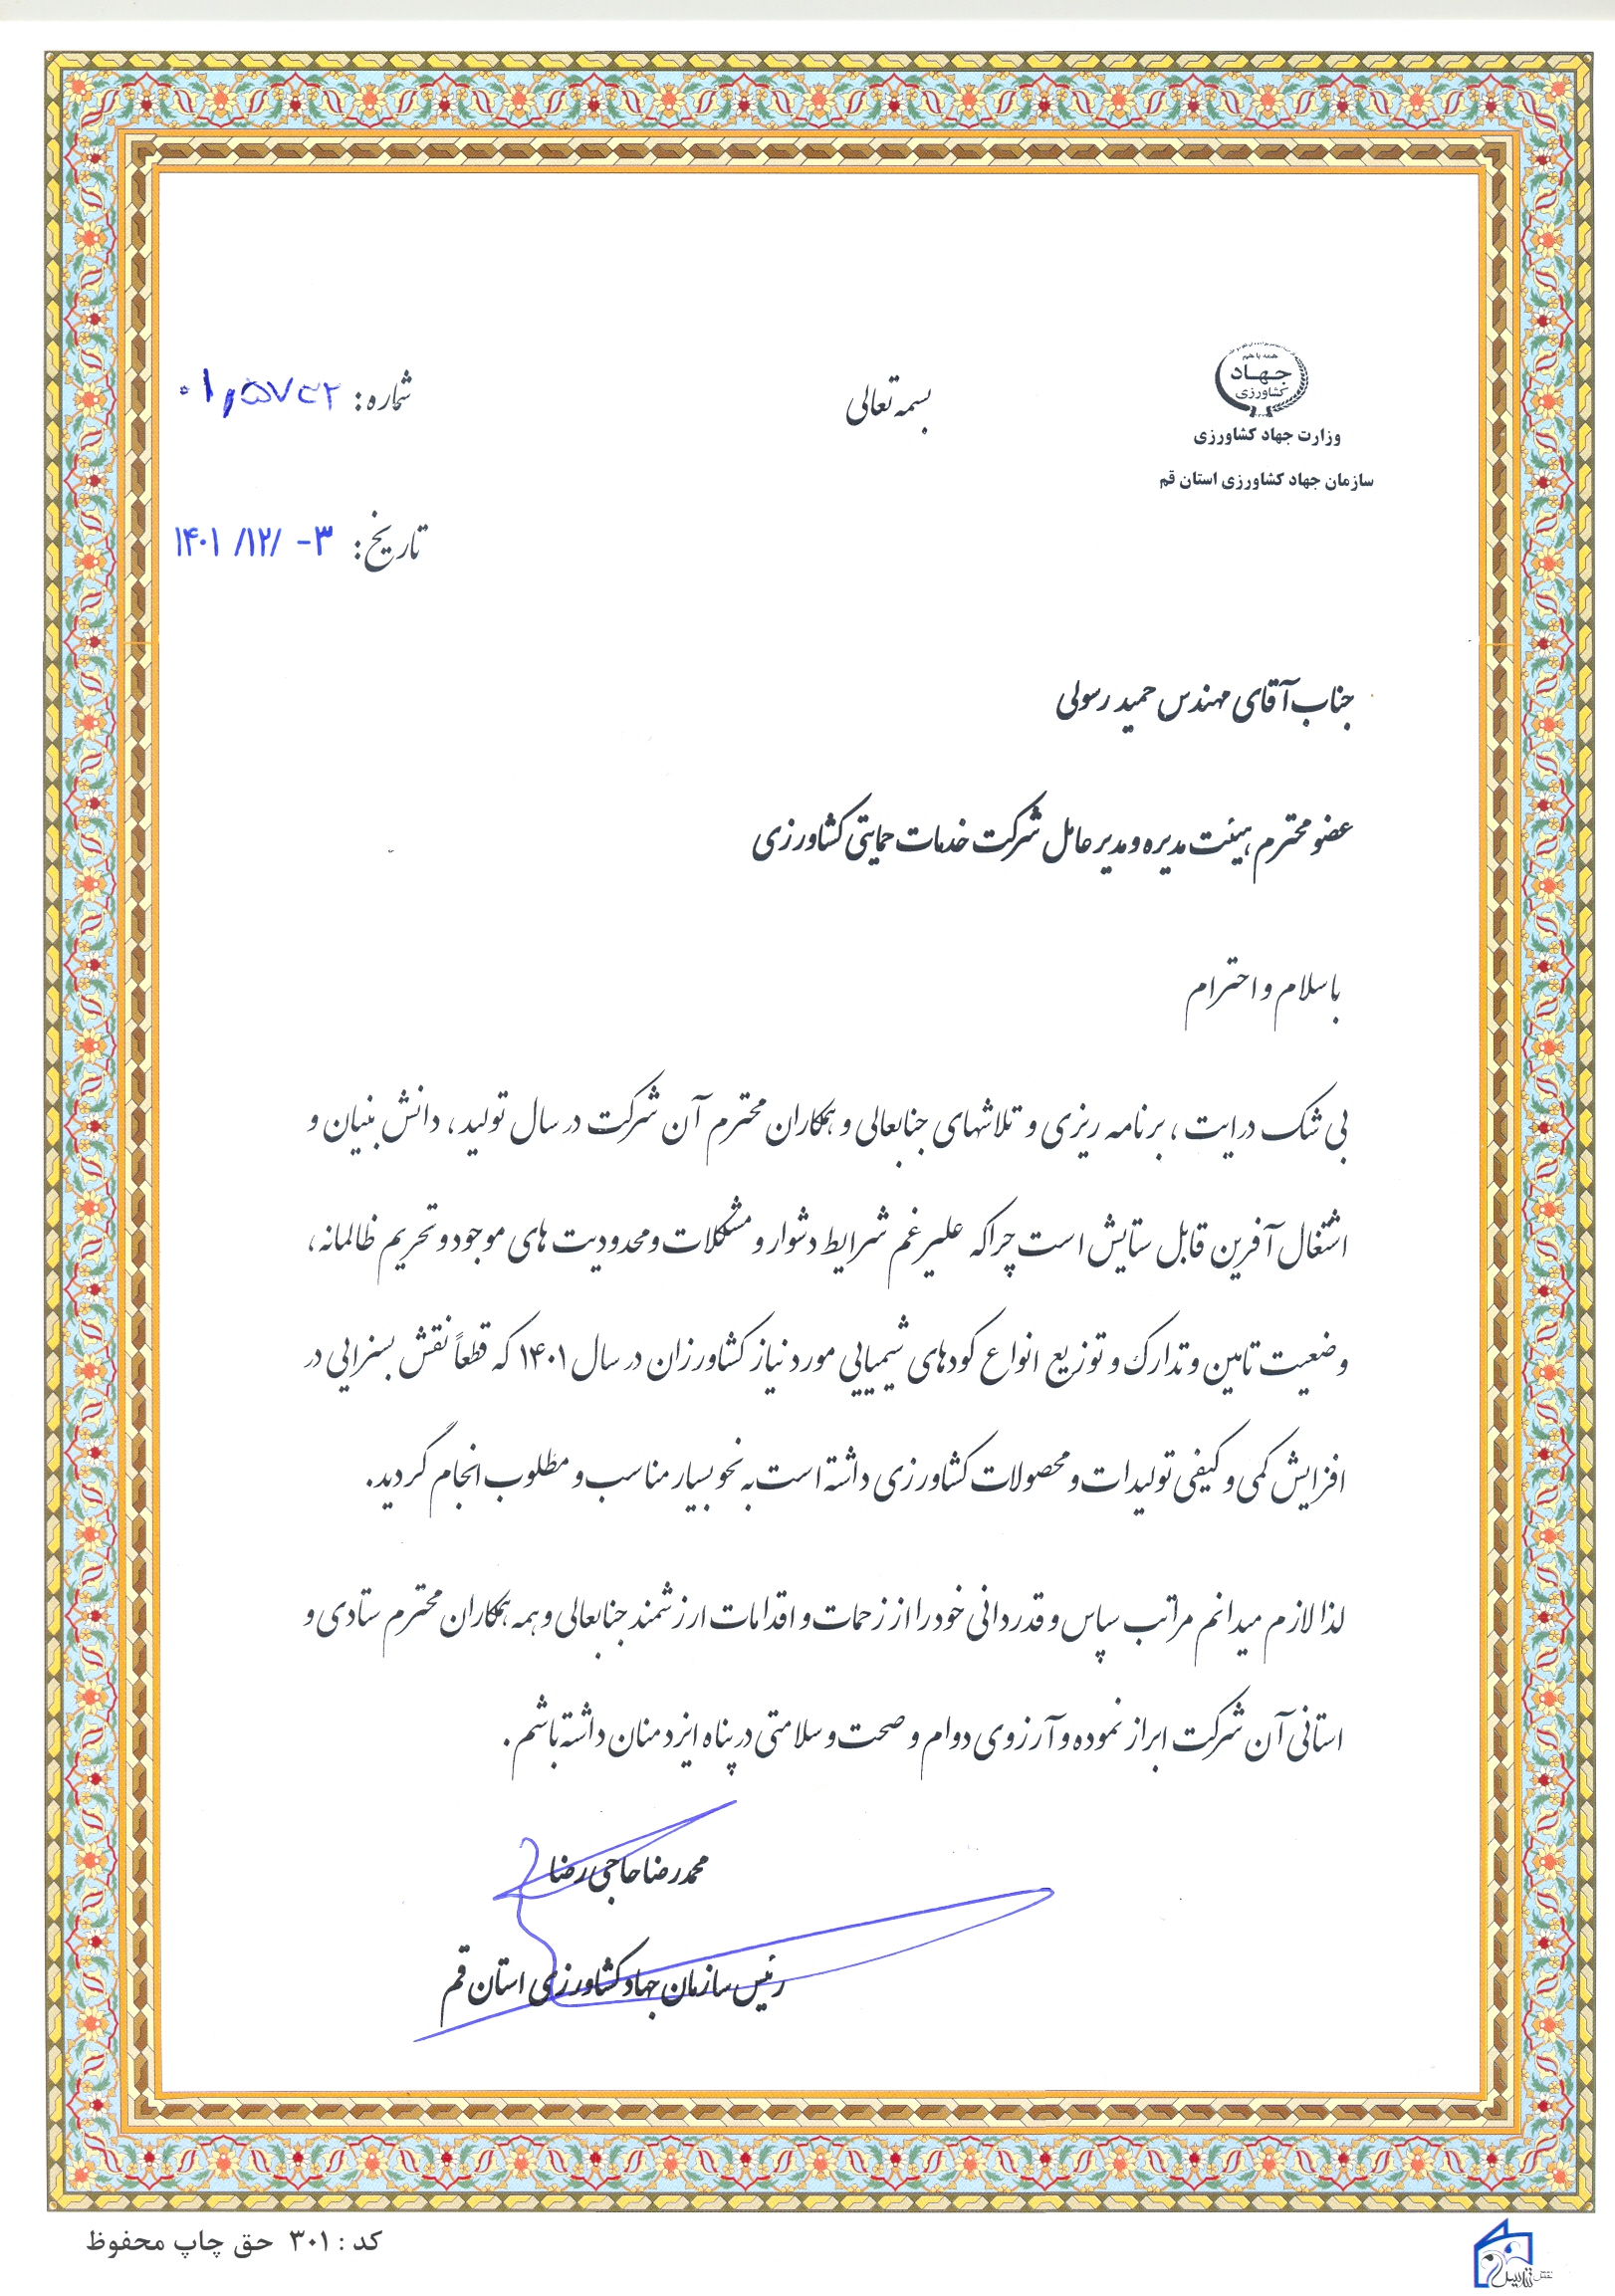 همه با هم
جهاد
کشاورزی
وزارت جهاد کشاورزی
سازمان جهاد کشاورزی استان قم
بسمه تعالی
شماره:
تاریخ: ۳- /۱۲/ ۱۴۰۱
جناب آقای مهندس حمید رسولی
عضو محترم هیئت مدیره و مدیر عامل شرکت خدمات حمایتی کشاورزی
با سلام و احترام
بی شک درایت ، برنامه ریزی و تلاشهای جنابعالی و همکاران محترم آن شرکت در سال تولید ، دانش بنیان و
اشتغال آفرین قابل ستایش است چراکه علیرغم شرایط دشوار و مشکلات و محدودیت های موجود و تحریم ظالمانه ،
وضعیت تامین و تدارک و توزیع انواع کودهای شیمیایی مورد نیاز کشاورزان در سال ۱۴۰۱ که قطعاً نقش بسزایی در
افزایش کمی و کیفی تولیدات و محصولات کشاورزی داشته است به نحو بسیار مناسب و مطلوب انجام گردید.
لذا لازم میدانم مراتب سپاس و قدردانی خود را از زحمات و اقدامات ارزشمند جنابعالی و همه همکاران محترم ستادی و
استانی آن شرکت ابراز نموده و آرزوی دوام و صحت و سلامتی در پناه ایزد منان داشته باشم .
محمدرضا حاجی رضا
رئیس سازمان جهاد کشاورزی استان قم
کد : ۳۰۱ حق چاپ محفوظ